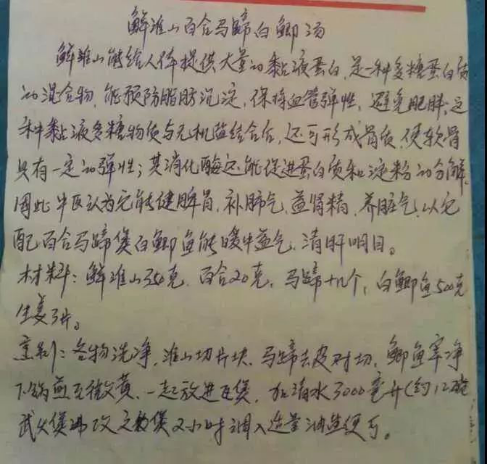 鲜淮山百合马蹄白鲫汤
鲜淮山能给人体提供大量的黏液蛋白,是一种多糖蛋白质
的混合物,能预防脂肪沉淀,保持血管弹性,避免肥胖,这
种黏液多糖物质与无机盐结合后,还可形成骨质,使软骨
具有一定的弹性;其消化酶还能促进蛋白质和淀粉的分解,
因此中医认为它能健脾胃,补肺气,益肾精,养脏气,以它
配百合马蹄煲白鲫鱼能暖中益气,清肝明目。
材料:鲜淮山350克,百合20克,马蹄十几个,白鲫鱼500克
生姜3片。
烹制:各物洗净,淮山切片块,马蹄去皮对切,鲫鱼宰净
下锅煎至微黄,一起放进瓦煲,加清水3000毫升(约12碗
武火煲沸改文火煲2小时调入适量油盐便可。